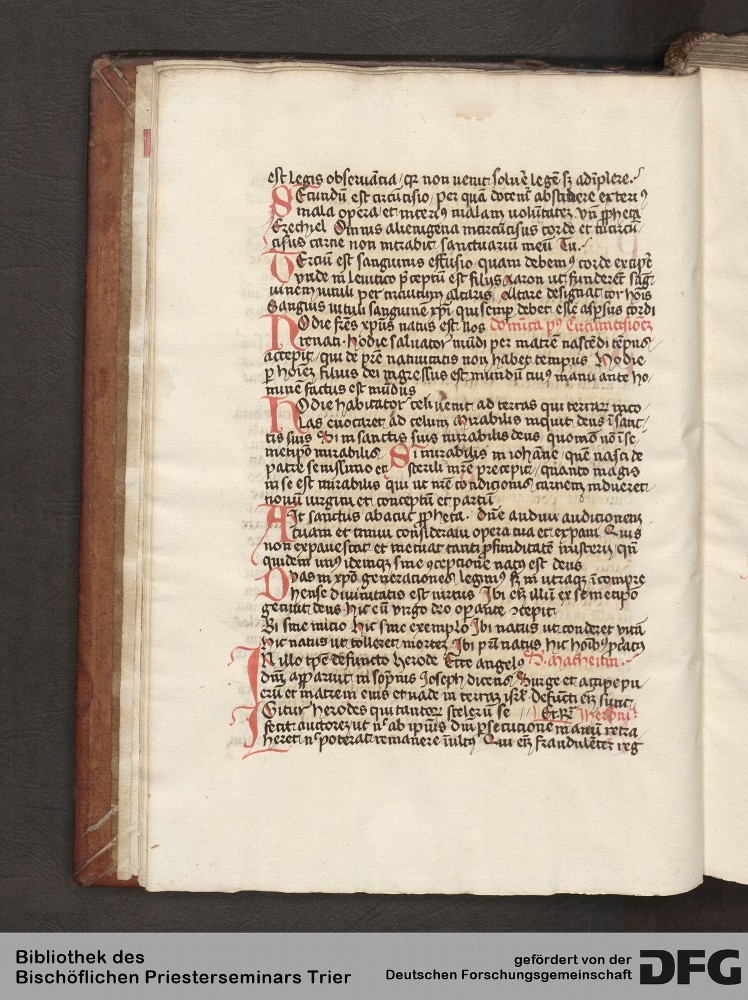 est legis obseruãcia / qr non uenit soluẽ legẽ sȝ adĩplere.
Secundũ est circũcisio / per quã docemr abscidere exteriꝰ
mala opera et interiꝰ malam volũtatẽ Vñ ꝓpheta
Ezechiel Omnis alienigena incircũcisus corde et incircũ
cisus carne non intrabit sanctuariũ meũ Tu.
Terciũ est sanguinis effusio quam debemꝰ corde excipẽ
vnde in leuitico p̃ceptũ est filijs Aaron ut funderẽt sãg
uinem uituli per circuitum altaris Altare designat cor hõis
Sanguis uituli sanguinẽ xp̃i qui semp debet esse asp̃sus cordi
Hodie fr̃es xp̃us natus est nos dominica pꝰ Circumcisionẽ
renati. Hodie saluator mũdi per matrẽ nascẽdi tẽpus
accepit / qui de pr̃e natiuitatis non habet tempus Hodie
p hoĩem filius dei ingressus est mundũ cuiꝰ manu ante ho
minem factus est mũdus
Hodie habitator celi uenit ad terras qui terrarȝ inco
las euocaret ad celum Mirabilis inquit deus ĩ sanc
tis suis Si in sanctis suis mirabilis deus quomõ nõ ĩ se
metipõ mirabilis Si mirabilis in iohãne / quẽ nasci de
patre senissimo et sterili mr̃e precepit / quanto magis
in se est mirabilis qui ut nr̃e condicionis carnem indueret
nouũ uirginis et conceptũ et partũ
Ait sanctus abacuc ꝓpheta. Dñe audiui audicionem
tuam et timui consideraui opera tua et expaui Quis
non expauescat et metuat tanti ꝓfunditatẽ misterij qñ
quidem vnꝰ idemqȝ sine ꝯcepcione natꝰ est deus
Duas in xp̃o generaciones legimꝰ sȝ in utraqȝ ĩcompre
hense diuinitatis est uirtus Ibi em̃ illũ ex semetipõ
genuit deus Hic eũ virgo deo oꝑante ꝯcepit
Ibi sine inicio Hic sine exemplo Ibi natus ut conderet vitã
Hic natus ut tolleret mortẽ Ibi pr̃i natus, hic hoĩbꝰ ꝓcatꝰ
In illo tp̃e defuncto herode Ecce angelꝰ S. Matheum.
dñi apparuit in sõpnis Joseph dicens Surge et accipe pu
erũ et matrẽ eius et uade in terram isrl̃ defũcti em̃ sunt
Igitur herodes qui tantorȝ scelerũ se Et Rr̃ Iheroniꝰ
fecit auctorẽ ut nc̃ ab ipsius dñi ꝑsecucione manũ retra
heret nc̃ poterat remanere ĩultꝰ Qui em̃ fraudulẽter reg
Bibliothek des
Bischöflichen Priesterseminars Trier
gefördert von der
Deutschen Forschungsgemeinschaft
DFG